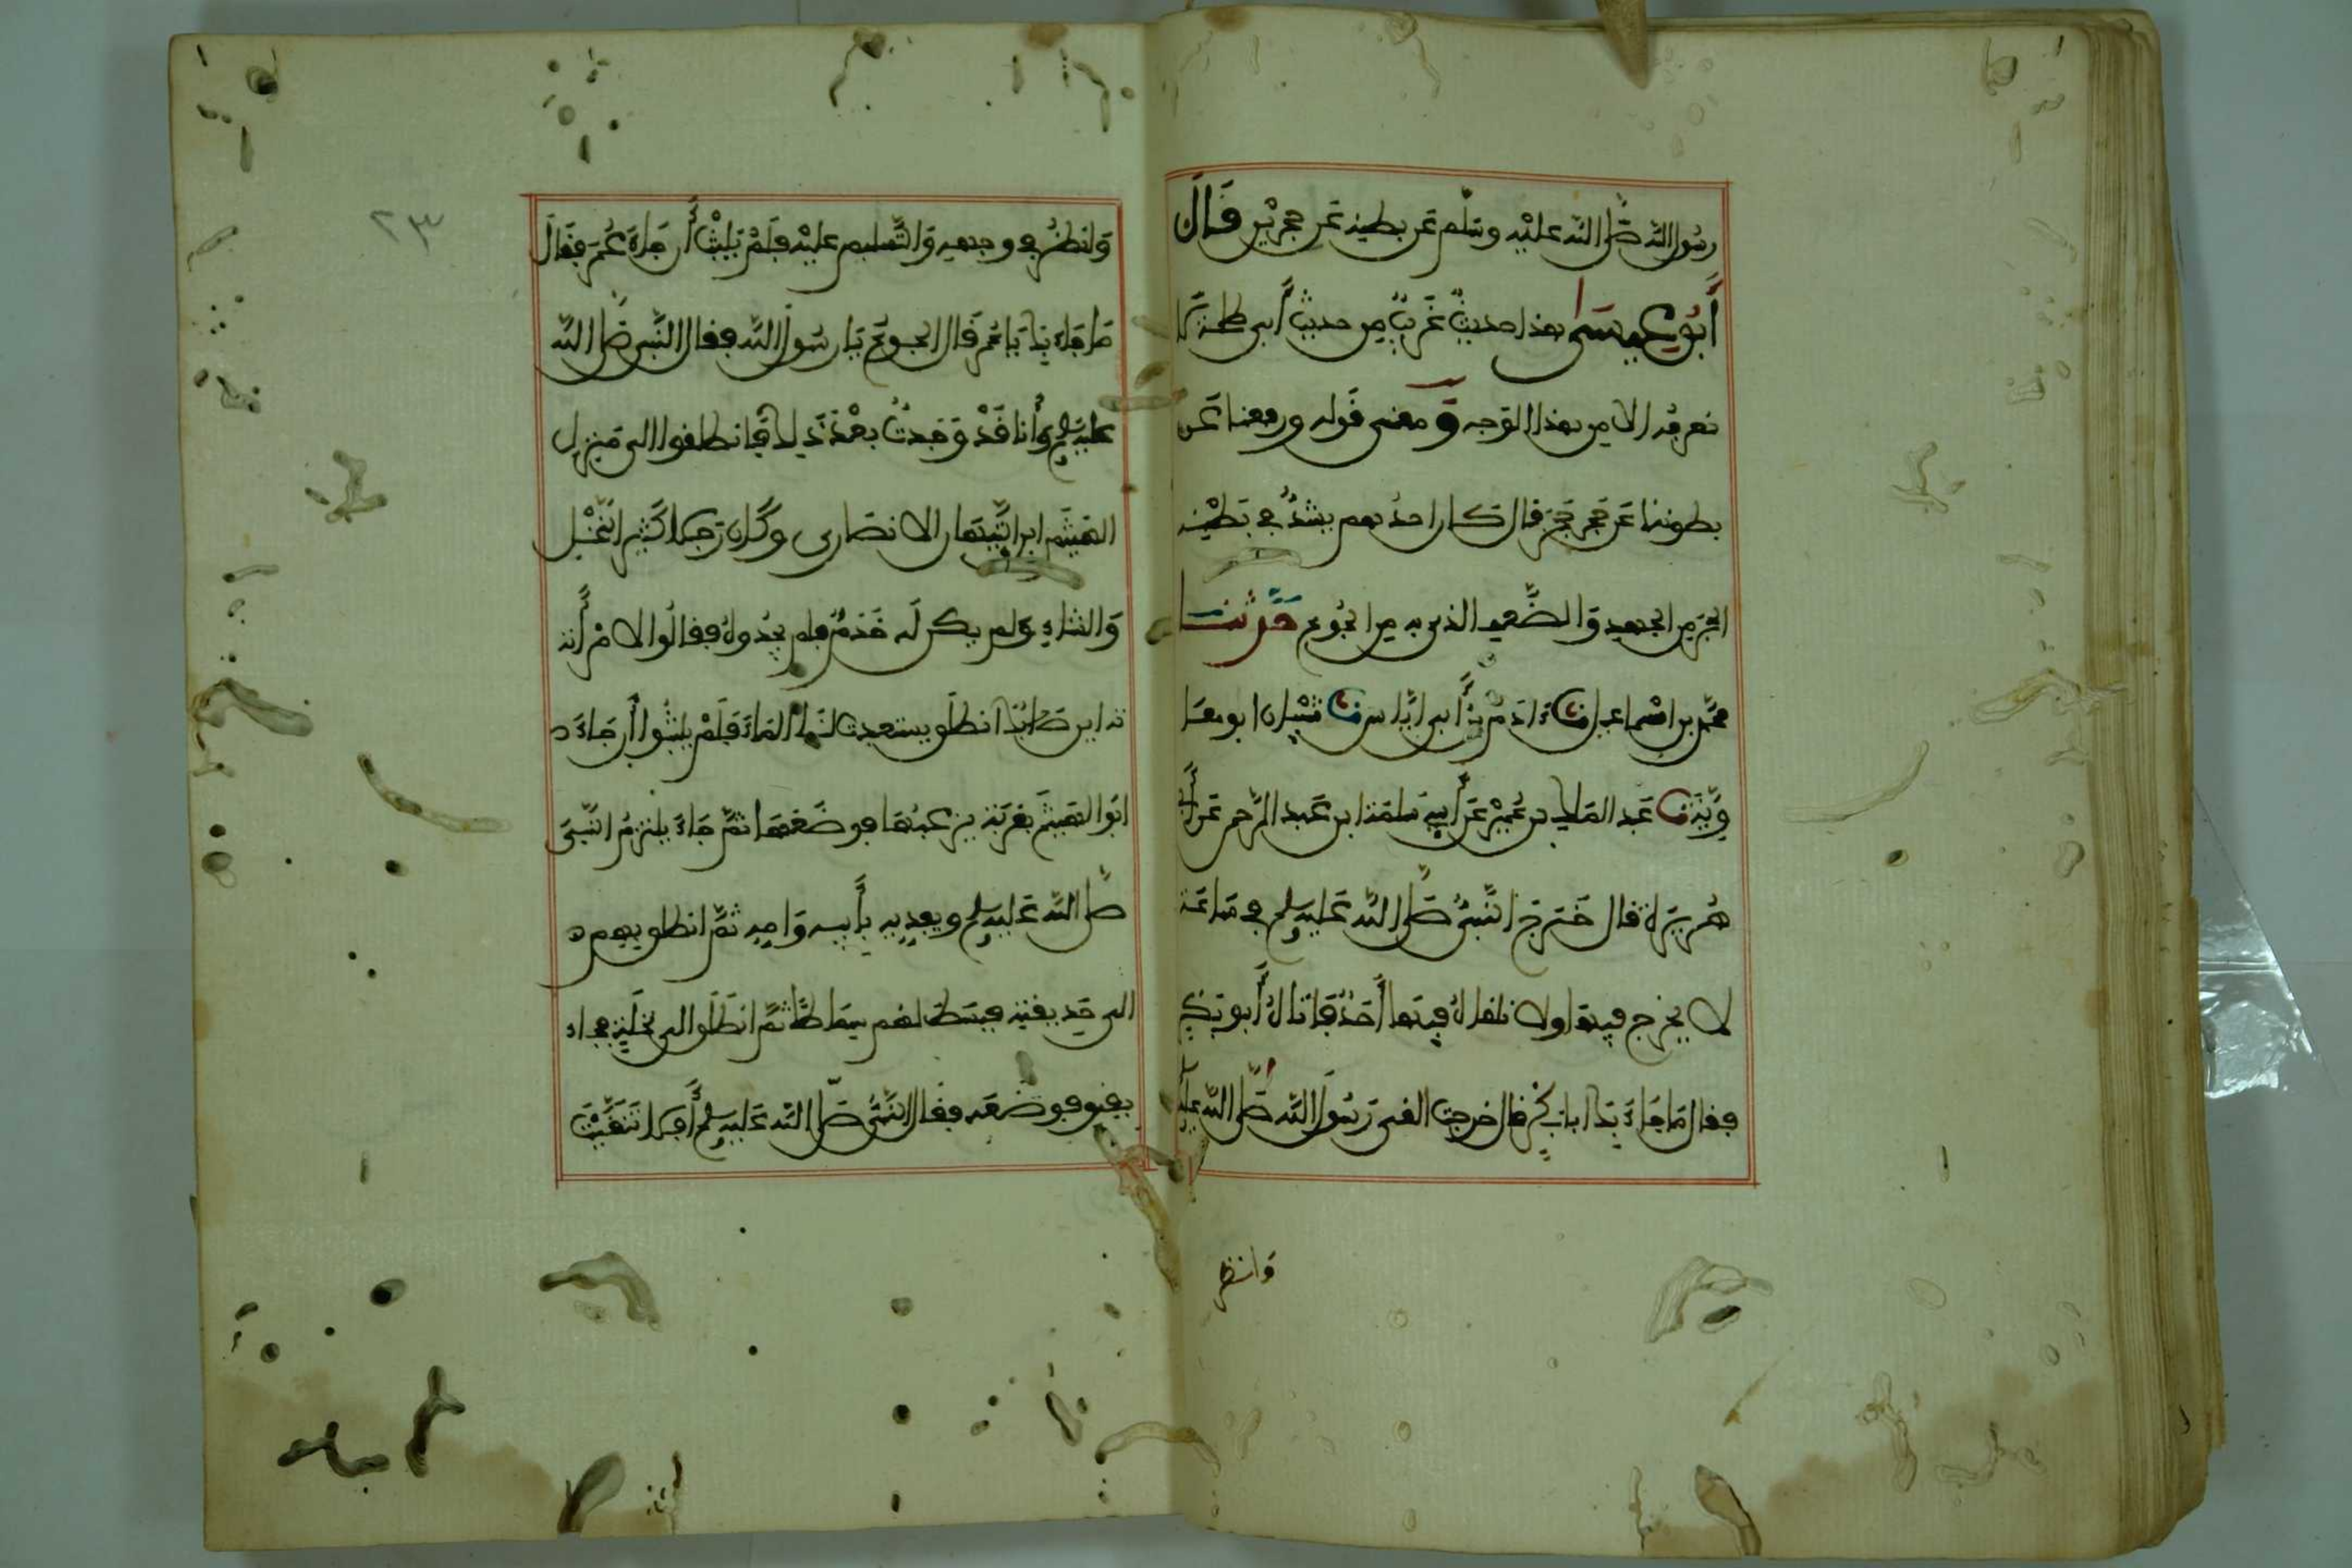 رسول الله صلى الله عليه وسلم عن بطنه عن حجرين قال
أبو عيسى هذا حديث غريب من حديث أبي طلحة لا
نعرفه إلا من هذا الوجه ومعنى قوله ورفعنا عن
بطوننا عن حجر حجر قال كان احدهم يشد في بطنه
الحجر من الجهد والضعف الذي به من الجوع حدثنا
محمد بن اسماعيل ثنا ادم بن أبي اياس ثنا شيبان ابو معا
وية ثنا عبد الملك بن عمير عن أبي سلمة ابن عبد الرحمن عن أبي
هريرة قال خرج النبي صلى الله عليه وسلم في ساعة
لا يخرج فيها ولا تلقاه فيها أحد فأتاه أبو بكر
فقال ما جاء بك يا ابا بكر قال خرجت القى رسول الله صلى الله عليه
وانظر
٢٣
وانظر في وجهه والتسليم عليه فلم يلبث أن جاء عمر فقال
ما جاء بك يا عمر قال الجوع يا رسول الله فقال النبي صلى الله
عليه وسلم وأنا قد وجدت بعض ذلك فانطلقوا الى منزل
الهيثم ابن التيهان الانصاري وكان رجلا كثير النخل
والشاء ولم يكن له خدم فلم يجدوه فقالوا لامرأته
اين صاحبك انطلق يستعذب لنا الماء فلم يلبثوا أن جاء
ابو الهيثم بقربة يزعبها فوضعها ثم جاء يلتزم النبي
صلى الله عليه وسلم ويفديه بأبيه وامه ثم انطلق بهم
الى حديقته فبسط لهم بساطا ثم انطلق الى نخلة فجاء
بقنو فوضعه فقال النبي صلى الله عليه وسلم أفلا تنقيت